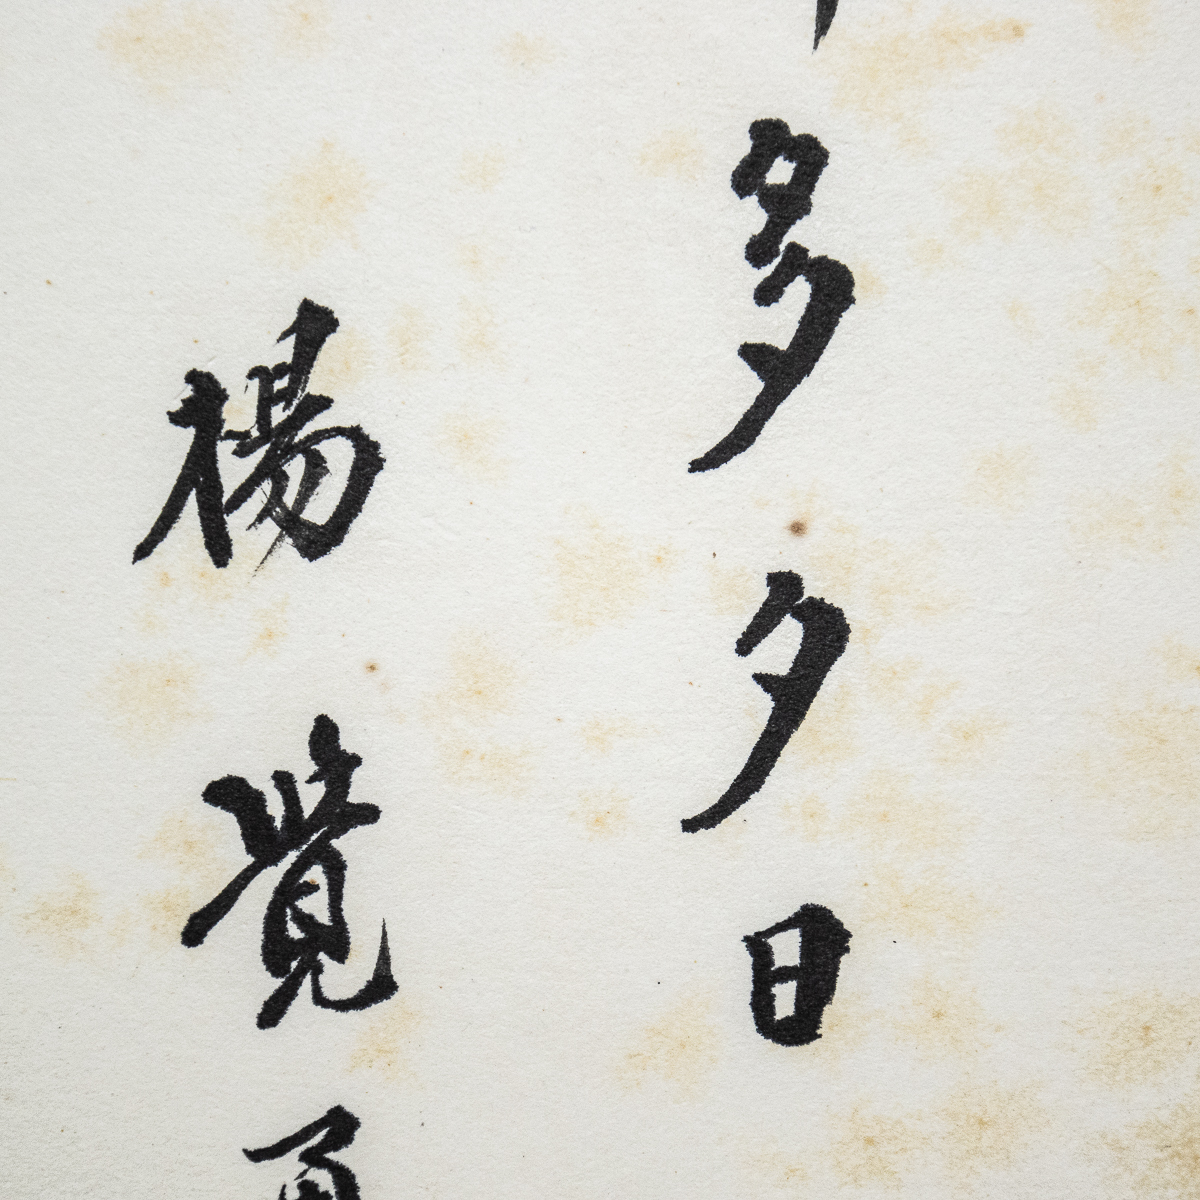 多夕日
楊覺